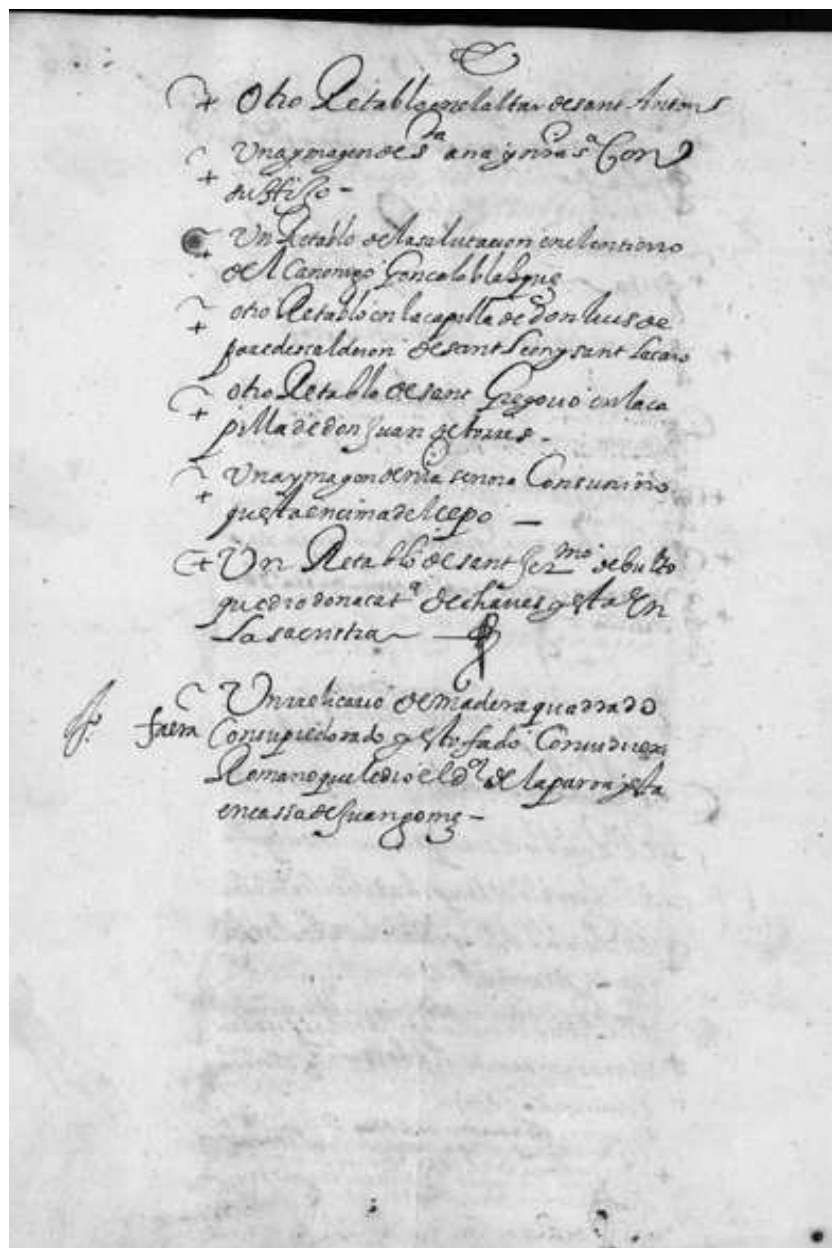 + otro Retablo en el altar de sant Anton
+ Una ymagen de sta ana y nra sa Con
su Hijo -
+ Un Retablo de la salutacion en el entierro
del Canonigo Goncalo blasques
+ otro Retablo en la capilla de don luis de
paredes calderon de sant Leon y sant Lacaro
+ otro Retablo de sant Gregorio en la ca
pilla de don Juan de torres -
+ Una ymagen de nra senora Con su niño
que esta encima del cepo -
+ Un Retablo de sant germo de bulto
que dio dona cata de chaves y esta En
La sacristia
Un relicario de madera quadrado
Con su pie dorado y estofado Con su
Romano que le dio el dor de la parra y esta
en cassa de Juan gomes -